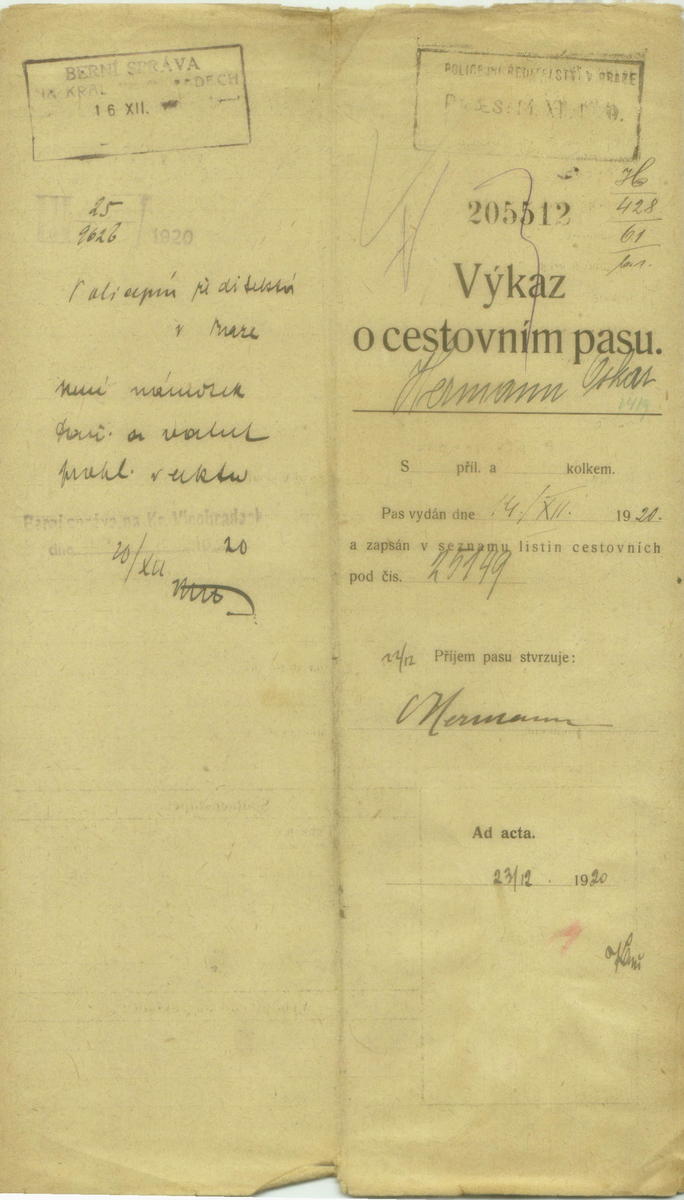 BERNÍ SPRÁVA
NA KRÁL.
16 XII.
25
9626
1920
Policejní ředitelství
v Praze
není námitek
a valut
v aktu
Berní správa na Kr. Vinohradech
dne 20/XII 20
POLICEJNÍ ŘEDITELSTVÍ V PRAZE
PRAES: 14. XII.
205512
H
428
61
Výkaz
o cestovním pasu.
Hermann Oskar
S příl. a kolkem.
Pas vydán dne 14./XII. 1920.
a zapsán v seznamu listin cestovních
pod čís. 25149
22/12 Příjem pasu stvrzuje:
Hermann
Ad acta.
23/12. 1920